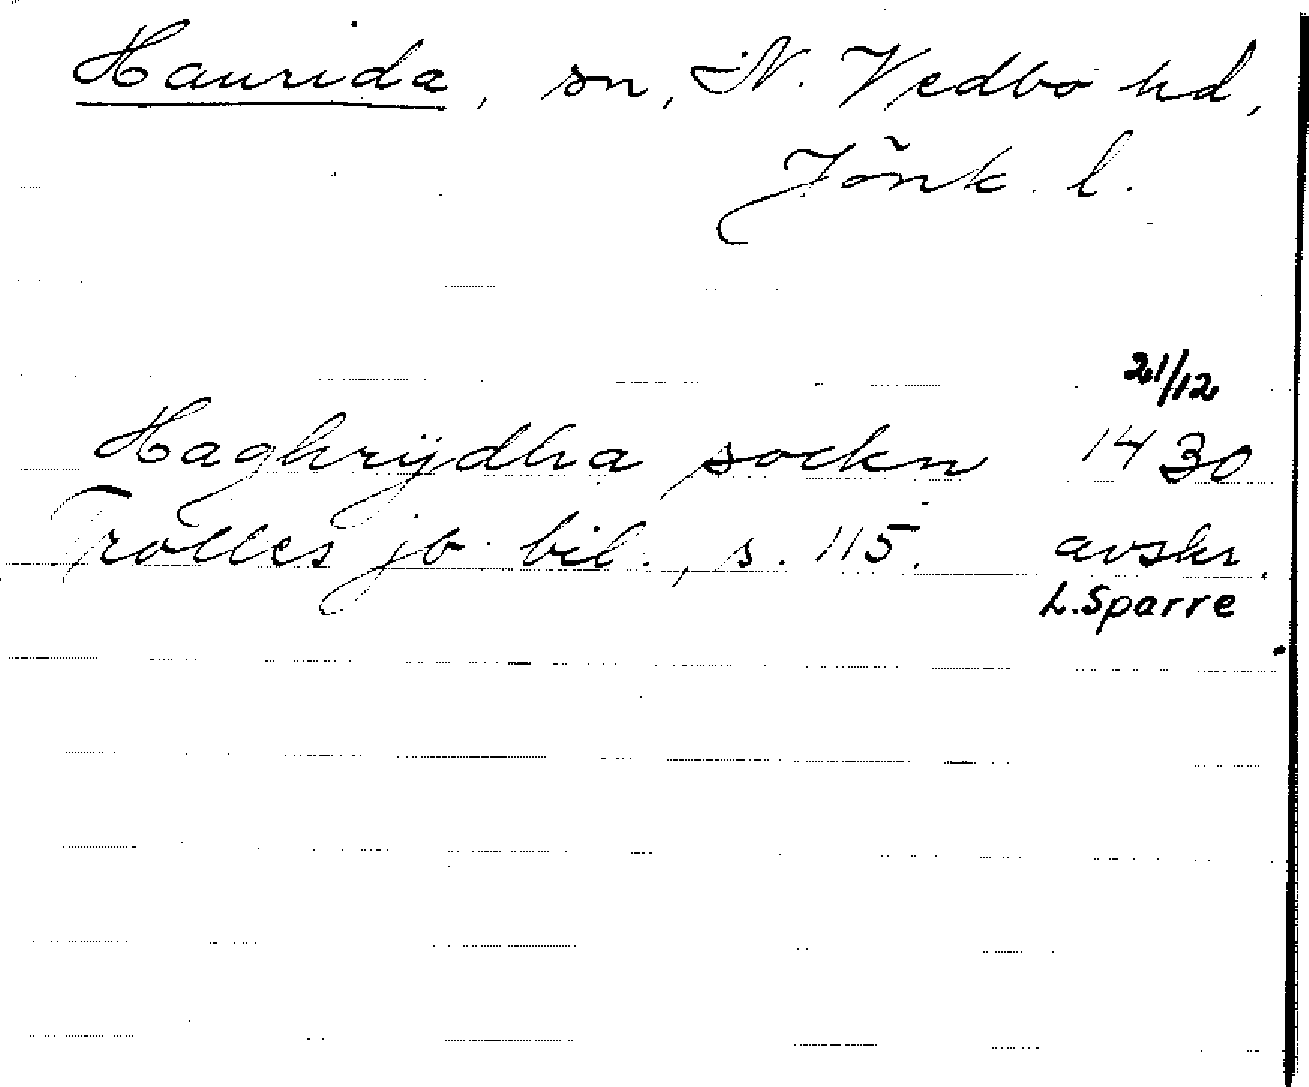 Haurida, sn, N. Vedbo hd,
Jönk. l.
21/12
Haghrÿdha sockn 1430
Trolles jb. bil., s. 115. avskr.
L. Sparre